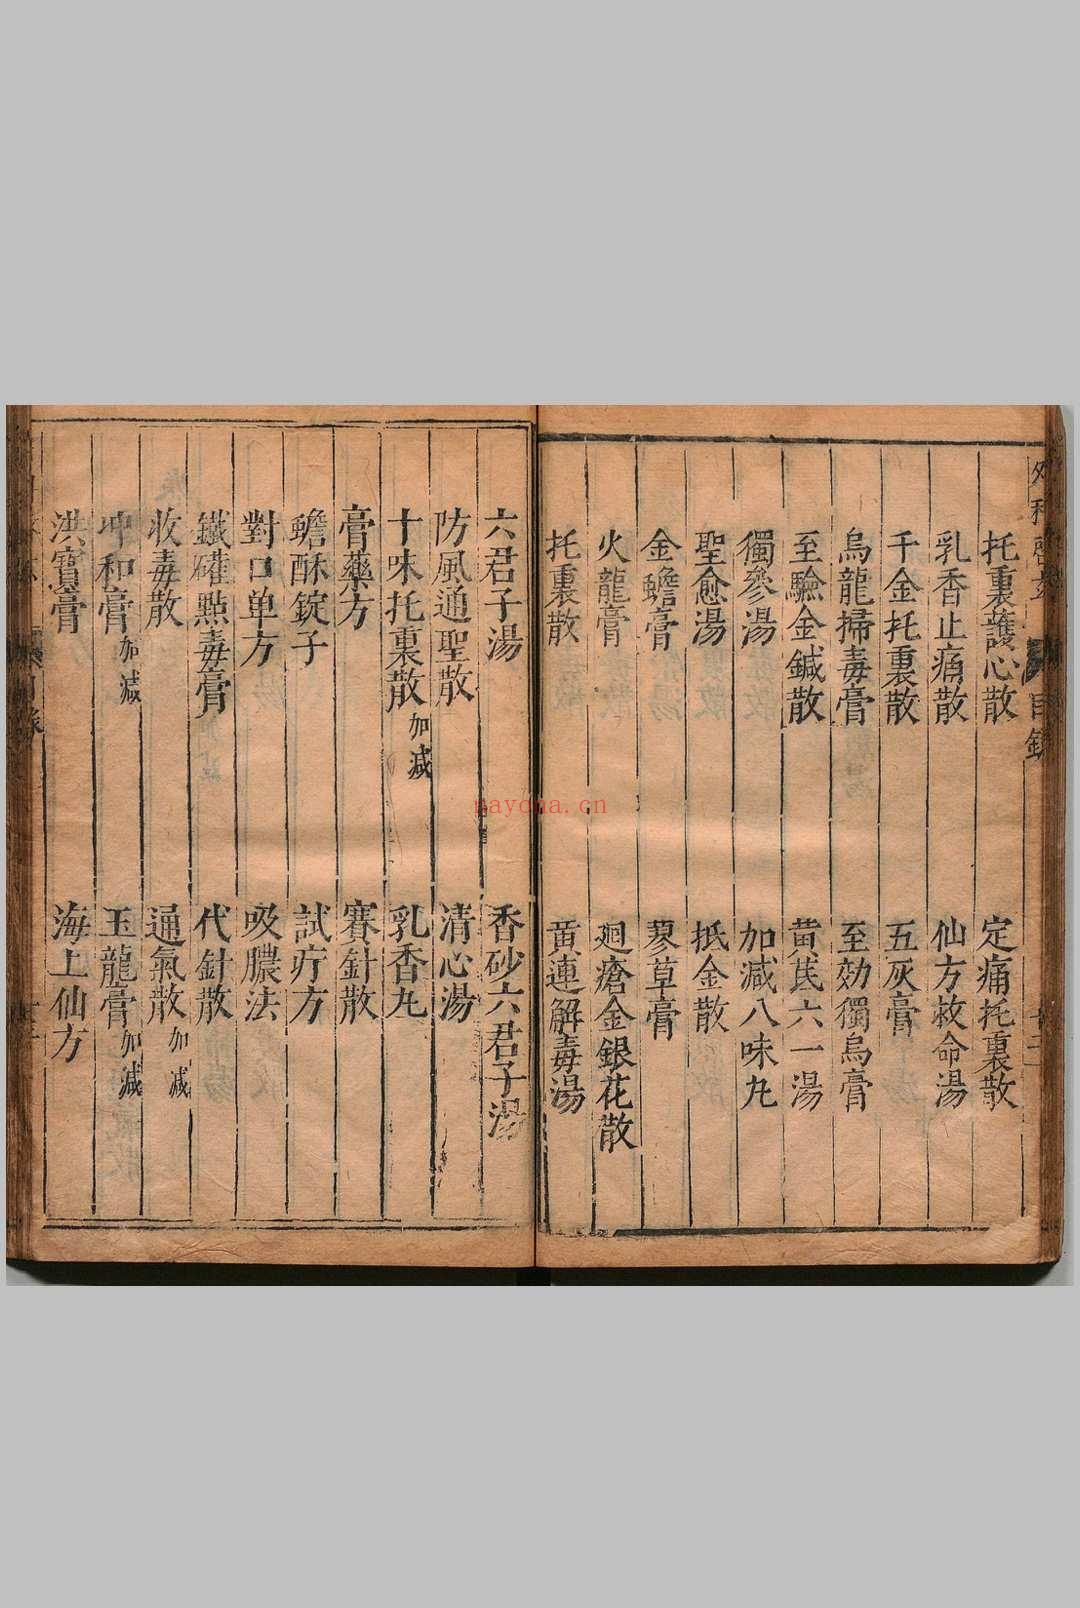 外科 目錄
托裏護心散 定痛托裏散
乳香止痛散 仙方救命湯
千金托裏散 五灰膏
烏龍掃毒膏 至効獨烏膏
至驗金鍼散 黄芪六一湯
獨參湯 加減八味丸
聖愈湯 抵金散
金蟾膏 蓼草膏
火龍膏 廻瘡金銀花散
托裏散 黄連解毒湯
六君子湯 香砂六君子湯
防風通聖散 清心湯
十味托裏散加減 乳香丸
膏藥方 賽針散
蟾酥錠子 試疔方
對口单方 吸膿法
鐵礶點毒膏 代針散
收毒散 通氣散加减
冲和膏加減 玉龍膏加減
洪寳膏 海上仙方
nayona.cn